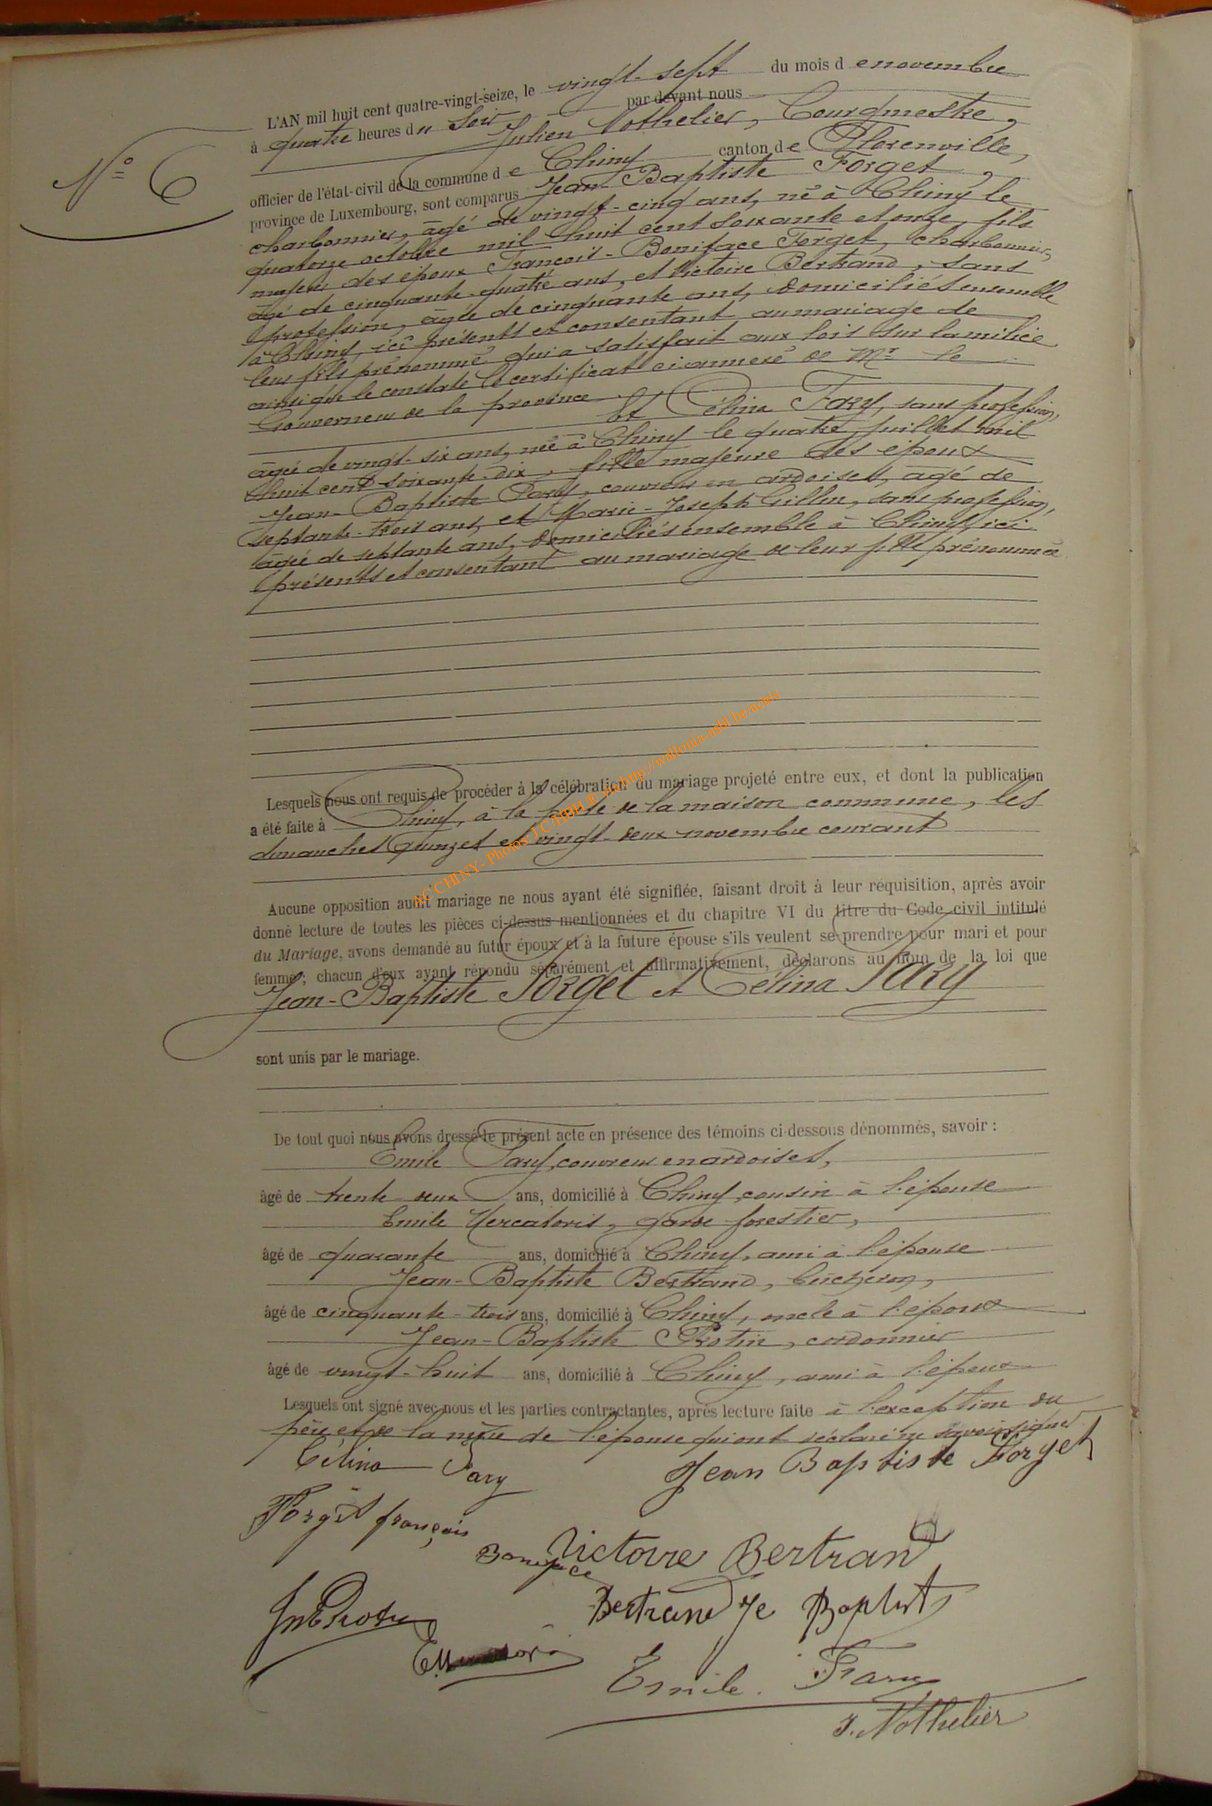 L'AN mil huit cent quatre-vingt-seize, le vingt-sept du mois de novembre
à quatre heures du soir par devant nous
N° 6
Julien Nothelier, Bourgmestre,
officier de l'état-civil de la commune de Chiny canton de Florenville,
province de Luxembourg, sont comparus Jean-Baptiste Forget,
charbonnier, âgé de vingt-cinq ans, né à Chiny le
quatorze octobre mil huit cent soixante et onze, fils
majeur des époux François-Boniface Forget, charbonnier,
âgé de cinquante-quatre ans, et Victoire Bertrand, sans
profession, âgée de cinquante ans, domiciliés ensemble
à Chiny, ici présents et consentant au mariage de
leur fils prénommé qui a satisfait aux lois sur la milice
ainsi que le constate le certificat ci-annexé de Mr le
Gouverneur de la province
Et Célina Pary, sans profession,
âgée de vingt-six ans, née à Chiny le quatre juillet mil
huit cent soixante-dix, fille majeure des époux
Jean-Baptiste Pary, couvreur en ardoises, âgé de
septante-trois ans, et Marie-Joseph Gillin, sans profession,
âgée de septante ans, domiciliés ensemble à Chiny, ici
présents et consentant au mariage de leur fille prénommée
Lesquels nous ont requis de procéder à la célébration du mariage projeté entre eux, et dont la publication
a été faite à Chiny, à la porte de la maison commune, les
dimanches quinze et vingt-deux novembre courant
Aucune opposition audit mariage ne nous ayant été signifiée, faisant droit à leur réquisition, après avoir
donné lecture de toutes les pièces ci-dessus mentionnées et du chapitre VI du titre du Code civil intitulé
du Mariage, avons demandé au futur époux et à la future épouse s'ils veulent se prendre pour mari et pour
femme; chacun d'eux ayant répondu séparément et affirmativement, déclarons au nom de la loi que
Jean-Baptiste Forget et Célina Pary
sont unis par le mariage.
De tout quoi nous avons dressé le présent acte en présence des témoins ci-dessous dénommés, savoir :
Emile Pary, couvreur en ardoises,
âgé de trente-deux ans, domicilié à Chiny, cousin à l'épouse
Emile Mercatoris, garde forestier,
âgé de quarante ans, domicilié à Chiny, ami à l'épouse
Jean-Baptiste Bertrand, bûcheron,
âgé de cinquante-trois ans, domicilié à Chiny, oncle à l'époux
Jean-Baptiste Protin, cordonnier
âgé de vingt-huit ans, domicilié à Chiny, ami à l'époux
Lesquels ont signé avec nous et les parties contractantes, après lecture faite à l'exception du
père et de la mère de l'épouse qui ont déclaré ne savoir signer
Célina Pary
Jean Baptiste Forget
Forget françois
Boniface
Victoire Bertrand
Bertrand Je Baptist
Emile Pary
J. Nothelier